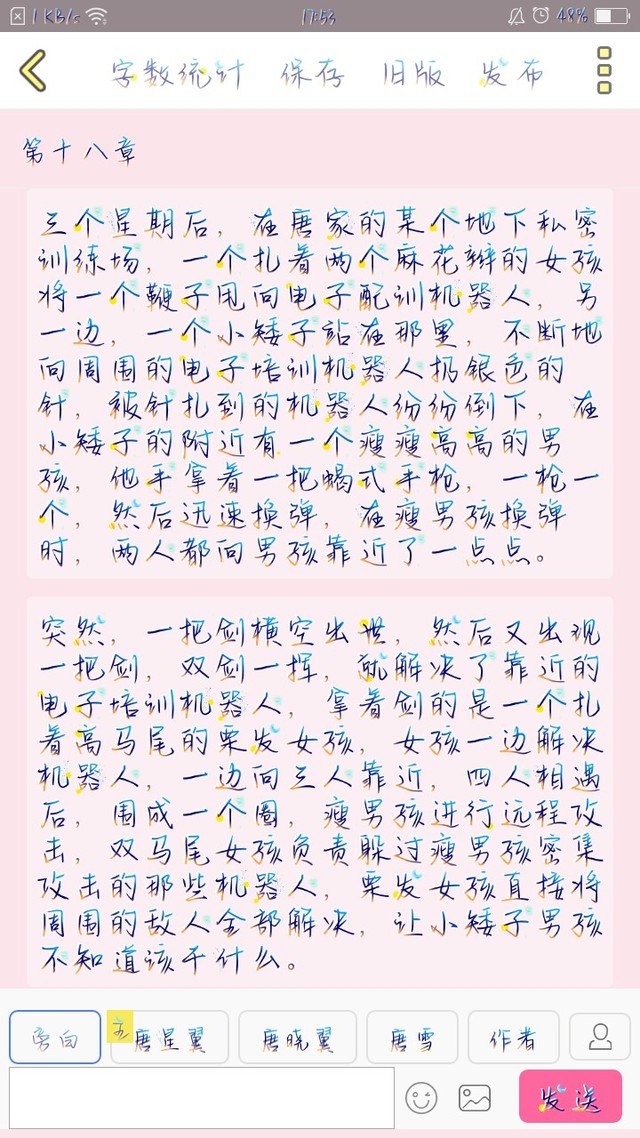 1 KB/s 17:53 48%
字数统计 保存 旧版 发布
第十八章
三个星期后，在唐家的某个地下私密
训练场，一个扎着两个麻花辫的女孩
将一个鞭子甩向电子配训机器人，另
一边，一个小矮子站在那里，不断地
向周围的电子培训机器人扔银色的
针，被针扎到的机器人纷纷倒下，在
小矮子的附近有一个瘦瘦高高的男
孩，他手拿着一把蝎式手枪，一枪一
个，然后迅速换弹，在瘦男孩换弹
时，两人都向男孩靠近了一点点。
突然，一把剑横空出世，然后又出现
一把剑，双剑一挥，就解决了靠近的
电子培训机器人，拿着剑的是一个扎
着高马尾的栗发女孩，女孩一边解决
机器人，一边向三人靠近，四人相遇
后，围成一个圈，瘦男孩进行远程攻
击，双马尾女孩负责躲过瘦男孩密集
攻击的那些机器人，栗发女孩直接将
周围的敌人全部解决，让小矮子男孩
不知道该干什么。
旁白 主 唐星翼 唐晓翼 唐雪 作者
发送